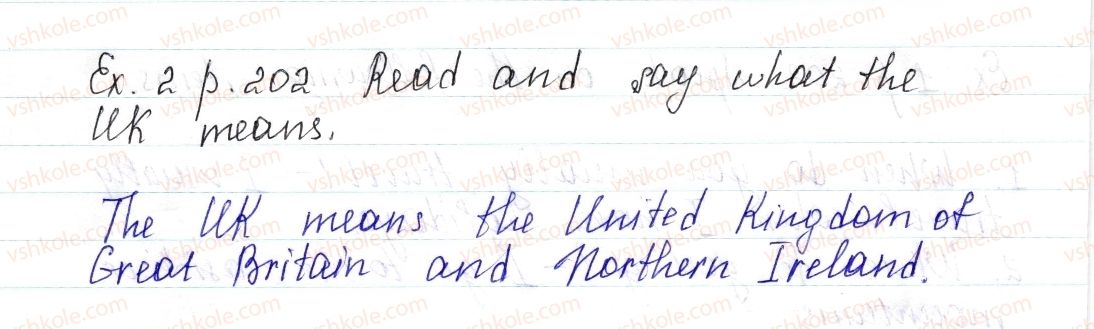 Ex. 2 p. 202 Read and say what the
UK means.
The UK means the United Kingdom of
Great Britain and Northern Ireland.